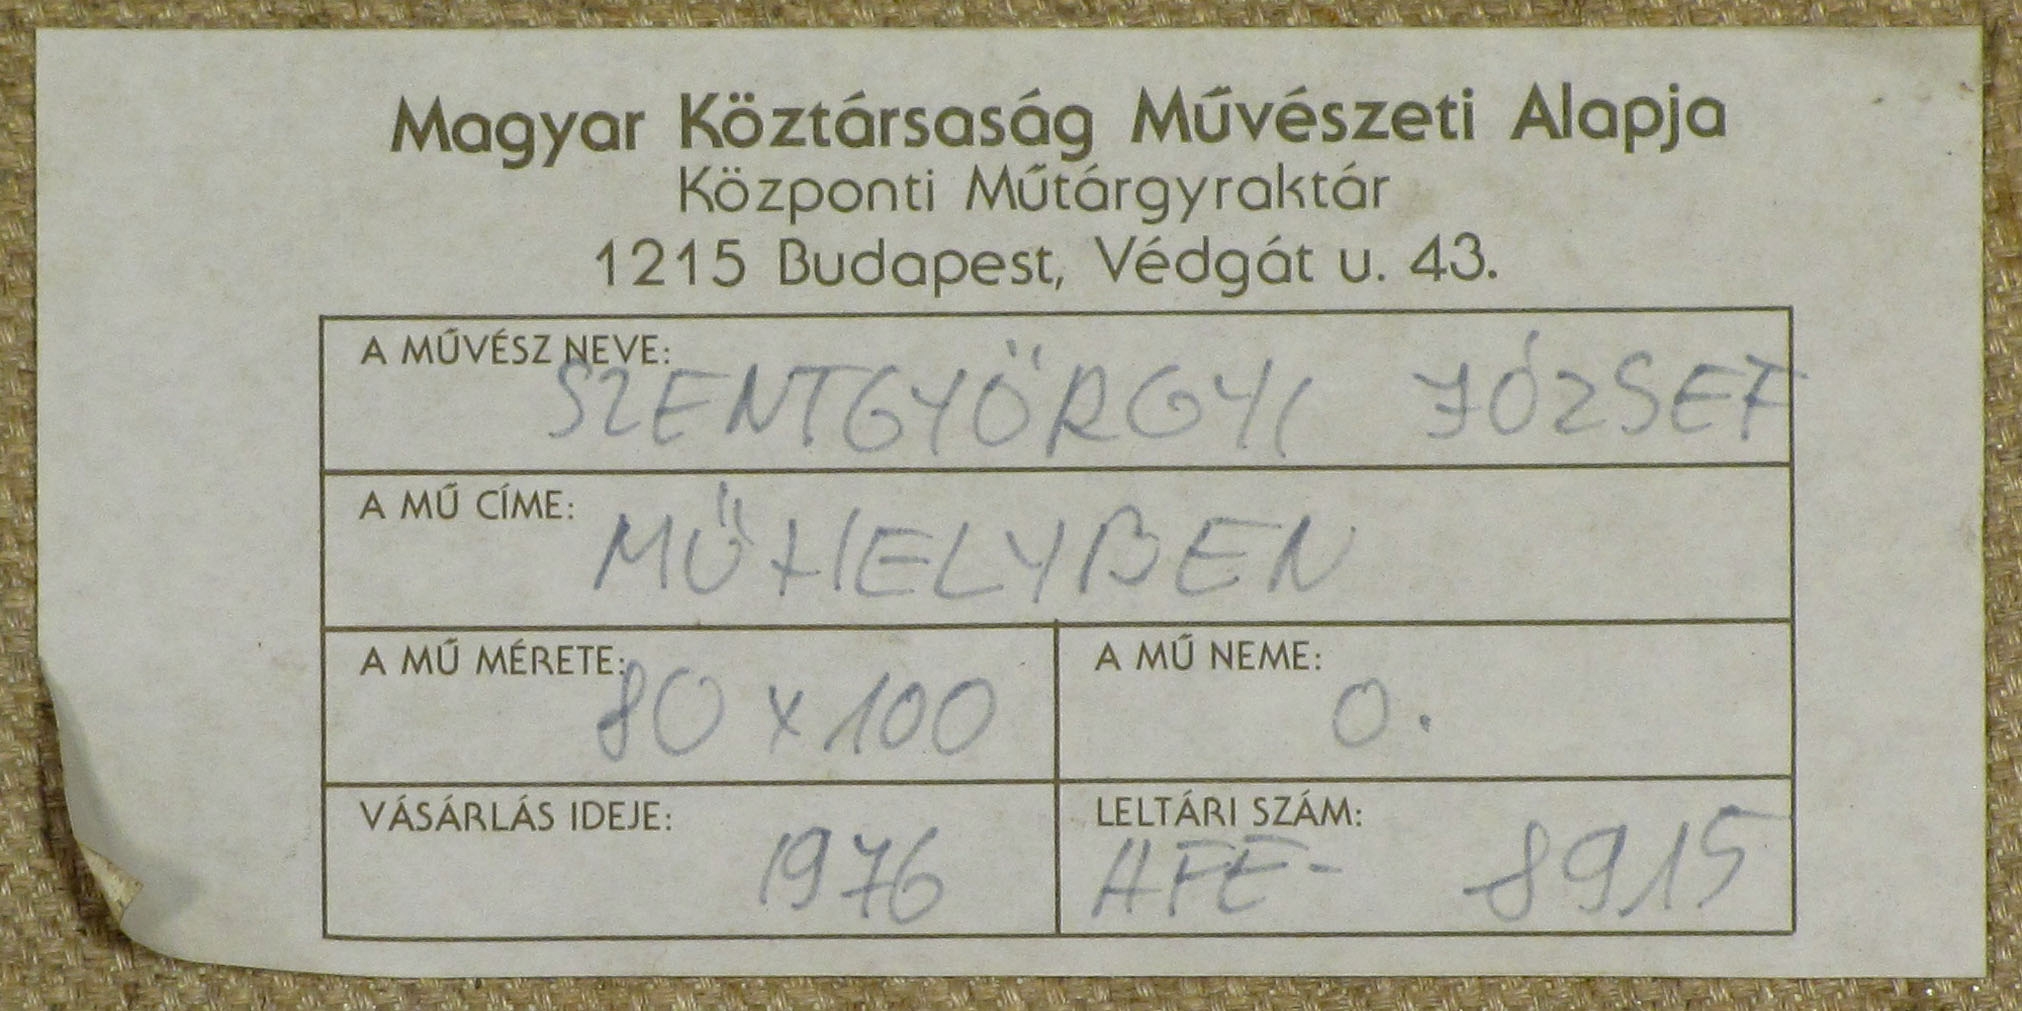 Magyar Köztársaság Művészeti Alapja
Központi Műtárgyraktár
1215 Budapest, Védgát u. 43.
A MŰVÉSZ NEVE: SZENTGYÖRGYI JÓZSEF
A MŰ CÍME: MŰHELYBEN
A MŰ MÉRETE: 80 x 100 A MŰ NEME: O.
VÁSÁRLÁS IDEJE: 1976 LELTÁRI SZÁM: AFE- 8915